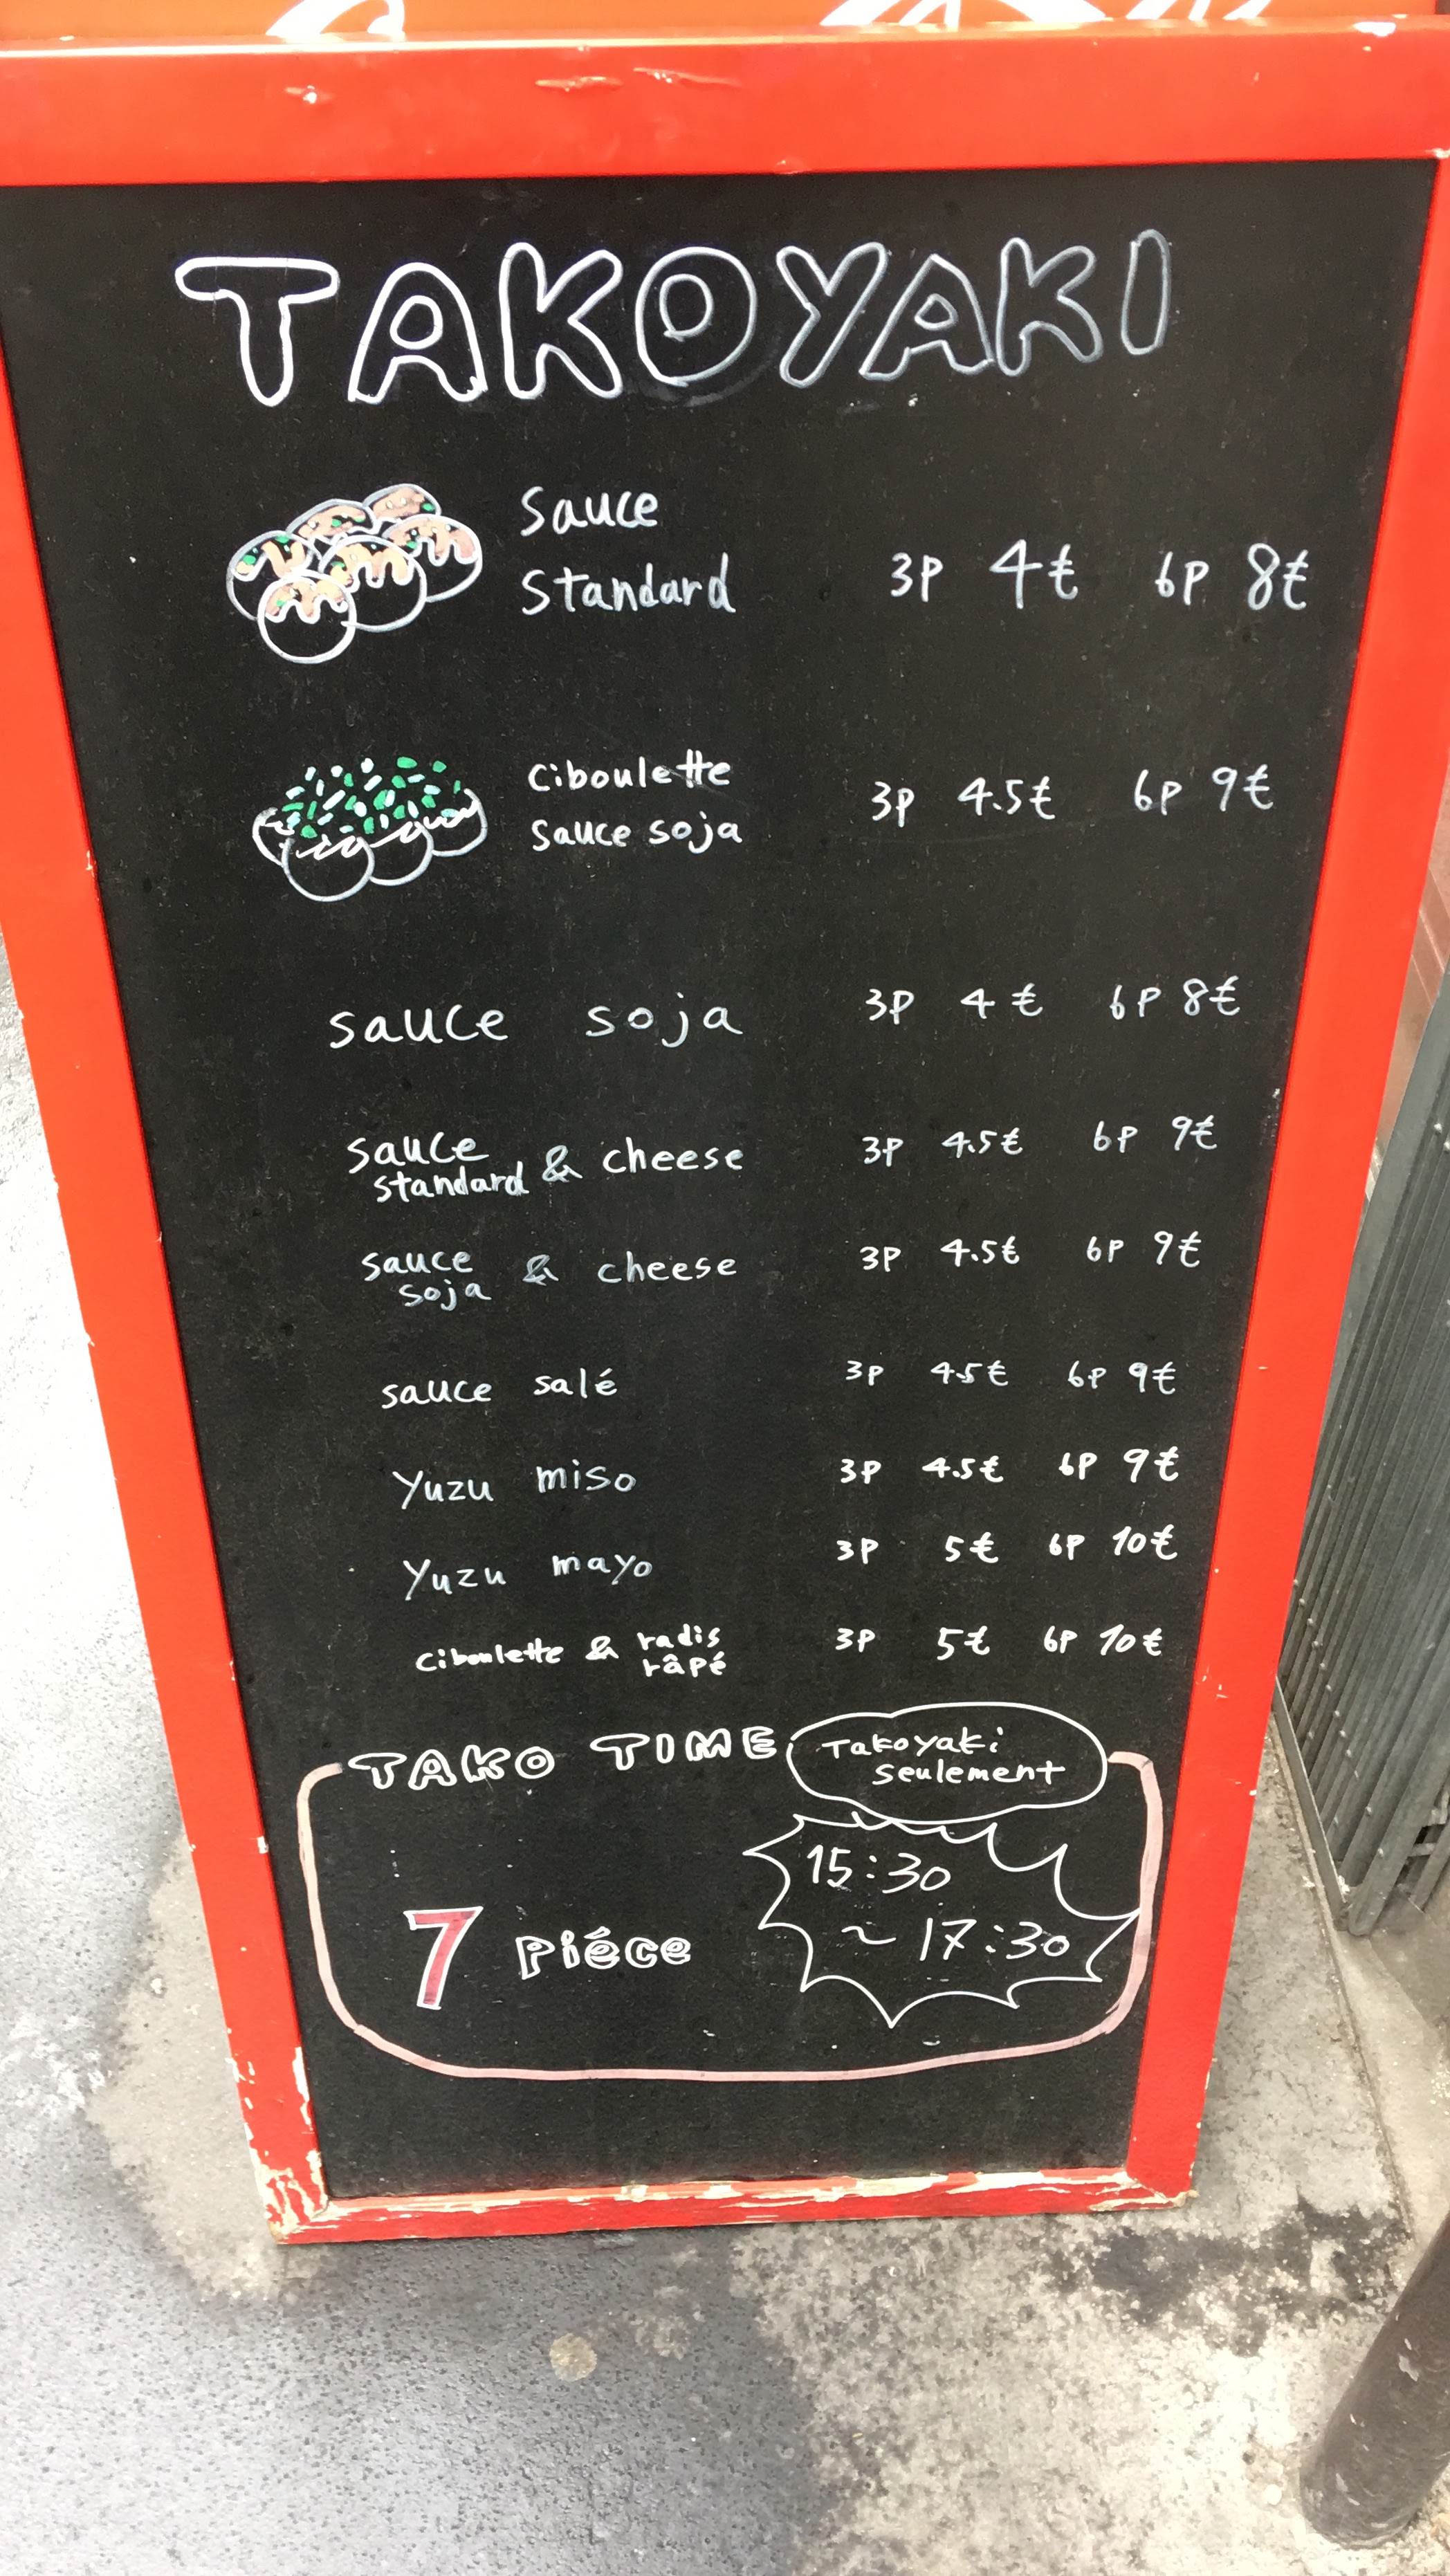 TAKOYAKI
Sauce
Standard 3P 4€ 6P 8€
Ciboulette
Sauce soja 3P 4.5€ 6P 9€
sauce soja 3P 4€ 6P 8€
sauce
standard & cheese 3P 4.5€ 6P 9€
sauce
soja & cheese 3P 4.5€ 6P 9€
sauce salé 3P 4.5€ 6P 9€
Yuzu miso 3P 4.5€ 6P 9€
Yuzu mayo 3P 5€ 6P 10€
ciboulette & radis
râpé 3P 5€ 6P 10€
TAKO TIME
Takoyaki
seulement
15:30
~ 17:30
7 Piéce